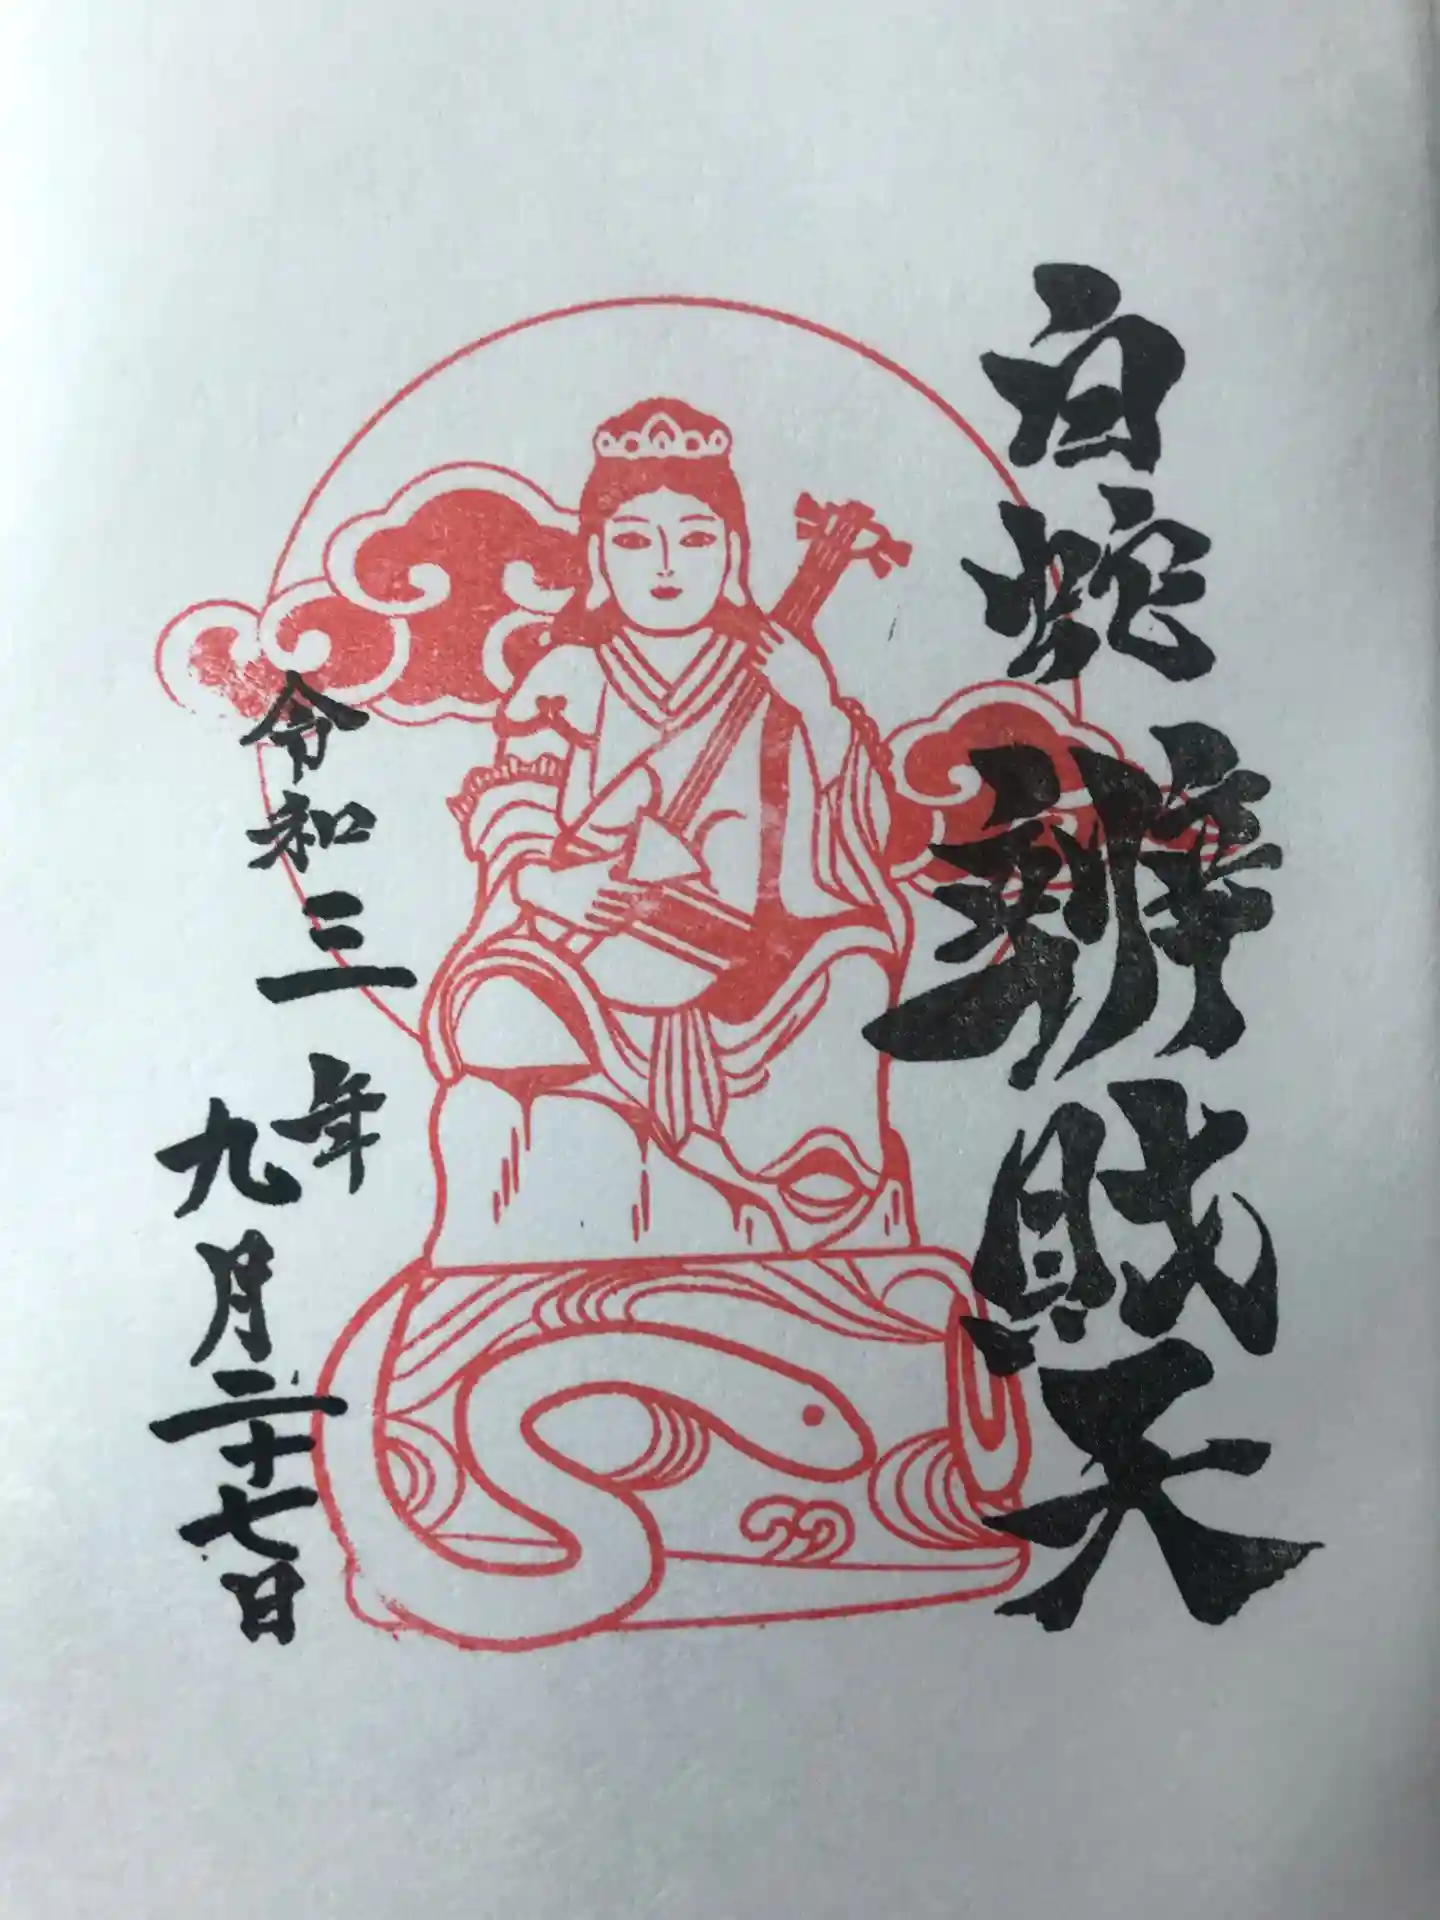 白蛇辨財天
令和三年
九月二十七日